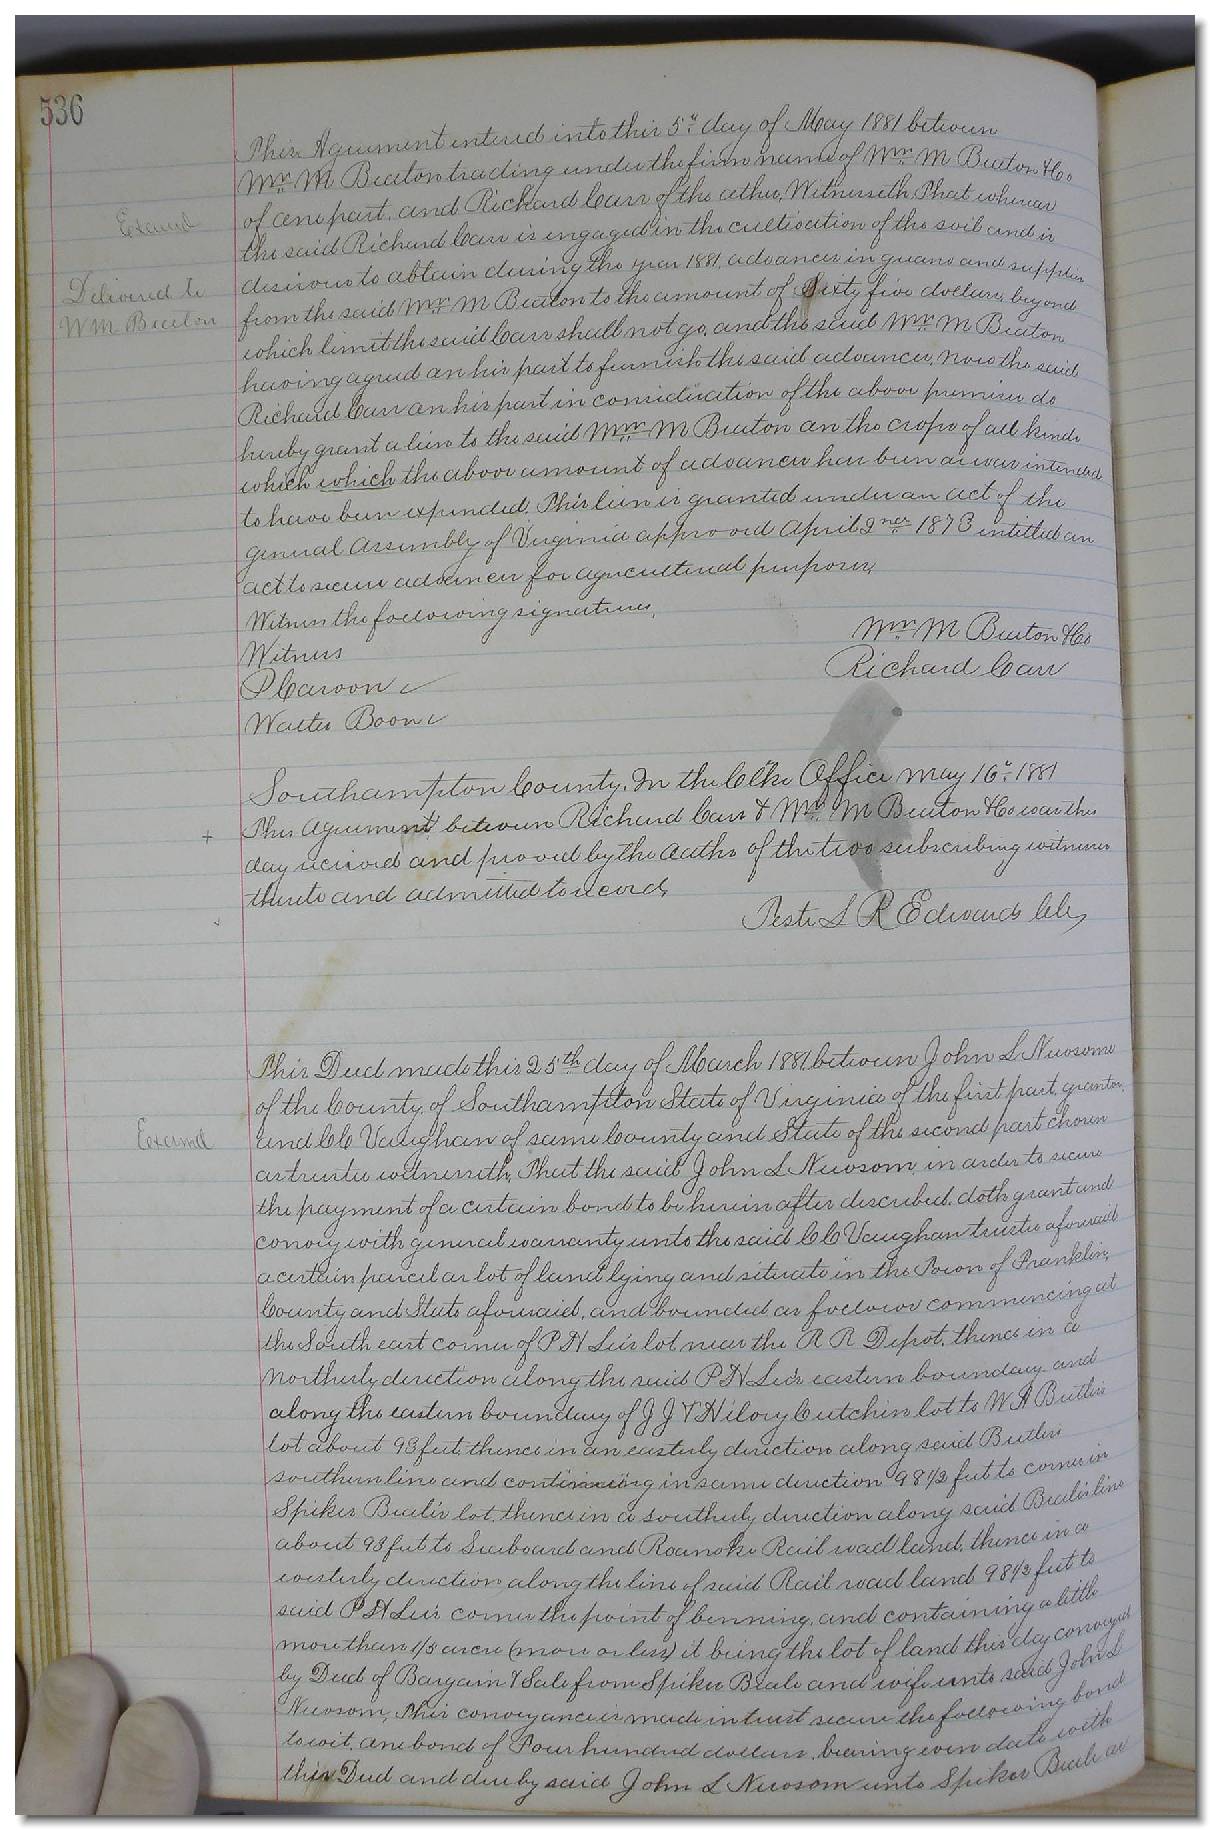 536
This Agreement entered into this 5th day of May 1881 between
Wm M Beaton trading under the firm name of Wm M Beaton & Co
of one part, and Richard Carr of the other, Witnesseth, That whereas
Examd
the said Richard Carr is engaged in the cultivation of the soil and is
desirous to obtain during the year 1881, advances in guano and supplies
Delivered to
from the said Wm M Beaton to the amount of Sixty five dollars, beyond
W M Beaton
which limit the said Carr shall not go, and the said Wm M Beaton
having agreed on his part to furnish the said advances, now the said
Richard Carr on his part in consideration of the above premises do
hereby grant a lien to the said Wm M Beaton on the crops of all kinds
which which the above amount of advances has been or was intended
to have been expended. This lien is granted under an act of the
general assembly of Virginia approved April 2nd 1873 intitled an
act to secure advances for agricultural purposes,
Witness the following signatures,
Wm M Beaton & Co
Witness
Richard Carr
P Caroon
Walter Boone
Southampton County, In the Clks Office May 16th 1881
This Agreement between Richard Carr & Wm M Beaton & Co was this
day received and proved by the oaths of the two subscribing witnesses
thereto and admitted to record,
Teste L R Edwards Clk,
This Deed made this 25th day of March 1881 between John L Newsome
of the County of Southampton State of Virginia of the first part, grantor,
Examd
and C C Vaughan of same County and State of the second part chosen
as trustee witnesseth, That the said John L Newsom, in order to secure
the payment of a certain bond to be herein after described, doth grant and
convey with general warranty unto the said C C Vaughan trustee aforesaid
a certain parcel or lot of land lying and situate in the Town of Franklin,
County and State aforesaid, and bounded as follows commencing at
the South east corner of P H Lee's lot near the R R Depot, thence in a
Northerly direction along the said P H Lee's eastern boundary and
along the eastern boundary of J J & Hilory Cutchin lot to W H Butlers
lot about 93 feet, thence in an easterly direction along said Butlers
southern line and continuing in same direction 98 1/2 feet to corner in
Spiker Beale's lot, thence in a southerly direction along said Beale's line
about 93 feet to Seaboard and Roanoke Rail road land, thence in a
westerly direction, along the line of said Rail road land 98 1/2 feet to
said P H Lee's corner the point of benning, and containing a little
more than 1/5 acre (more or less) it being the lot of land this day conveyed
by Deed of Bargain & Sale from Spiker Beale and wife unto said John L
Newsom, This conveyance is made in trust secure the following bond
to wit, one bond of Four hundred dollars, bearing even date with
this Deed and due by said John L Newsom unto Spiker Beale as